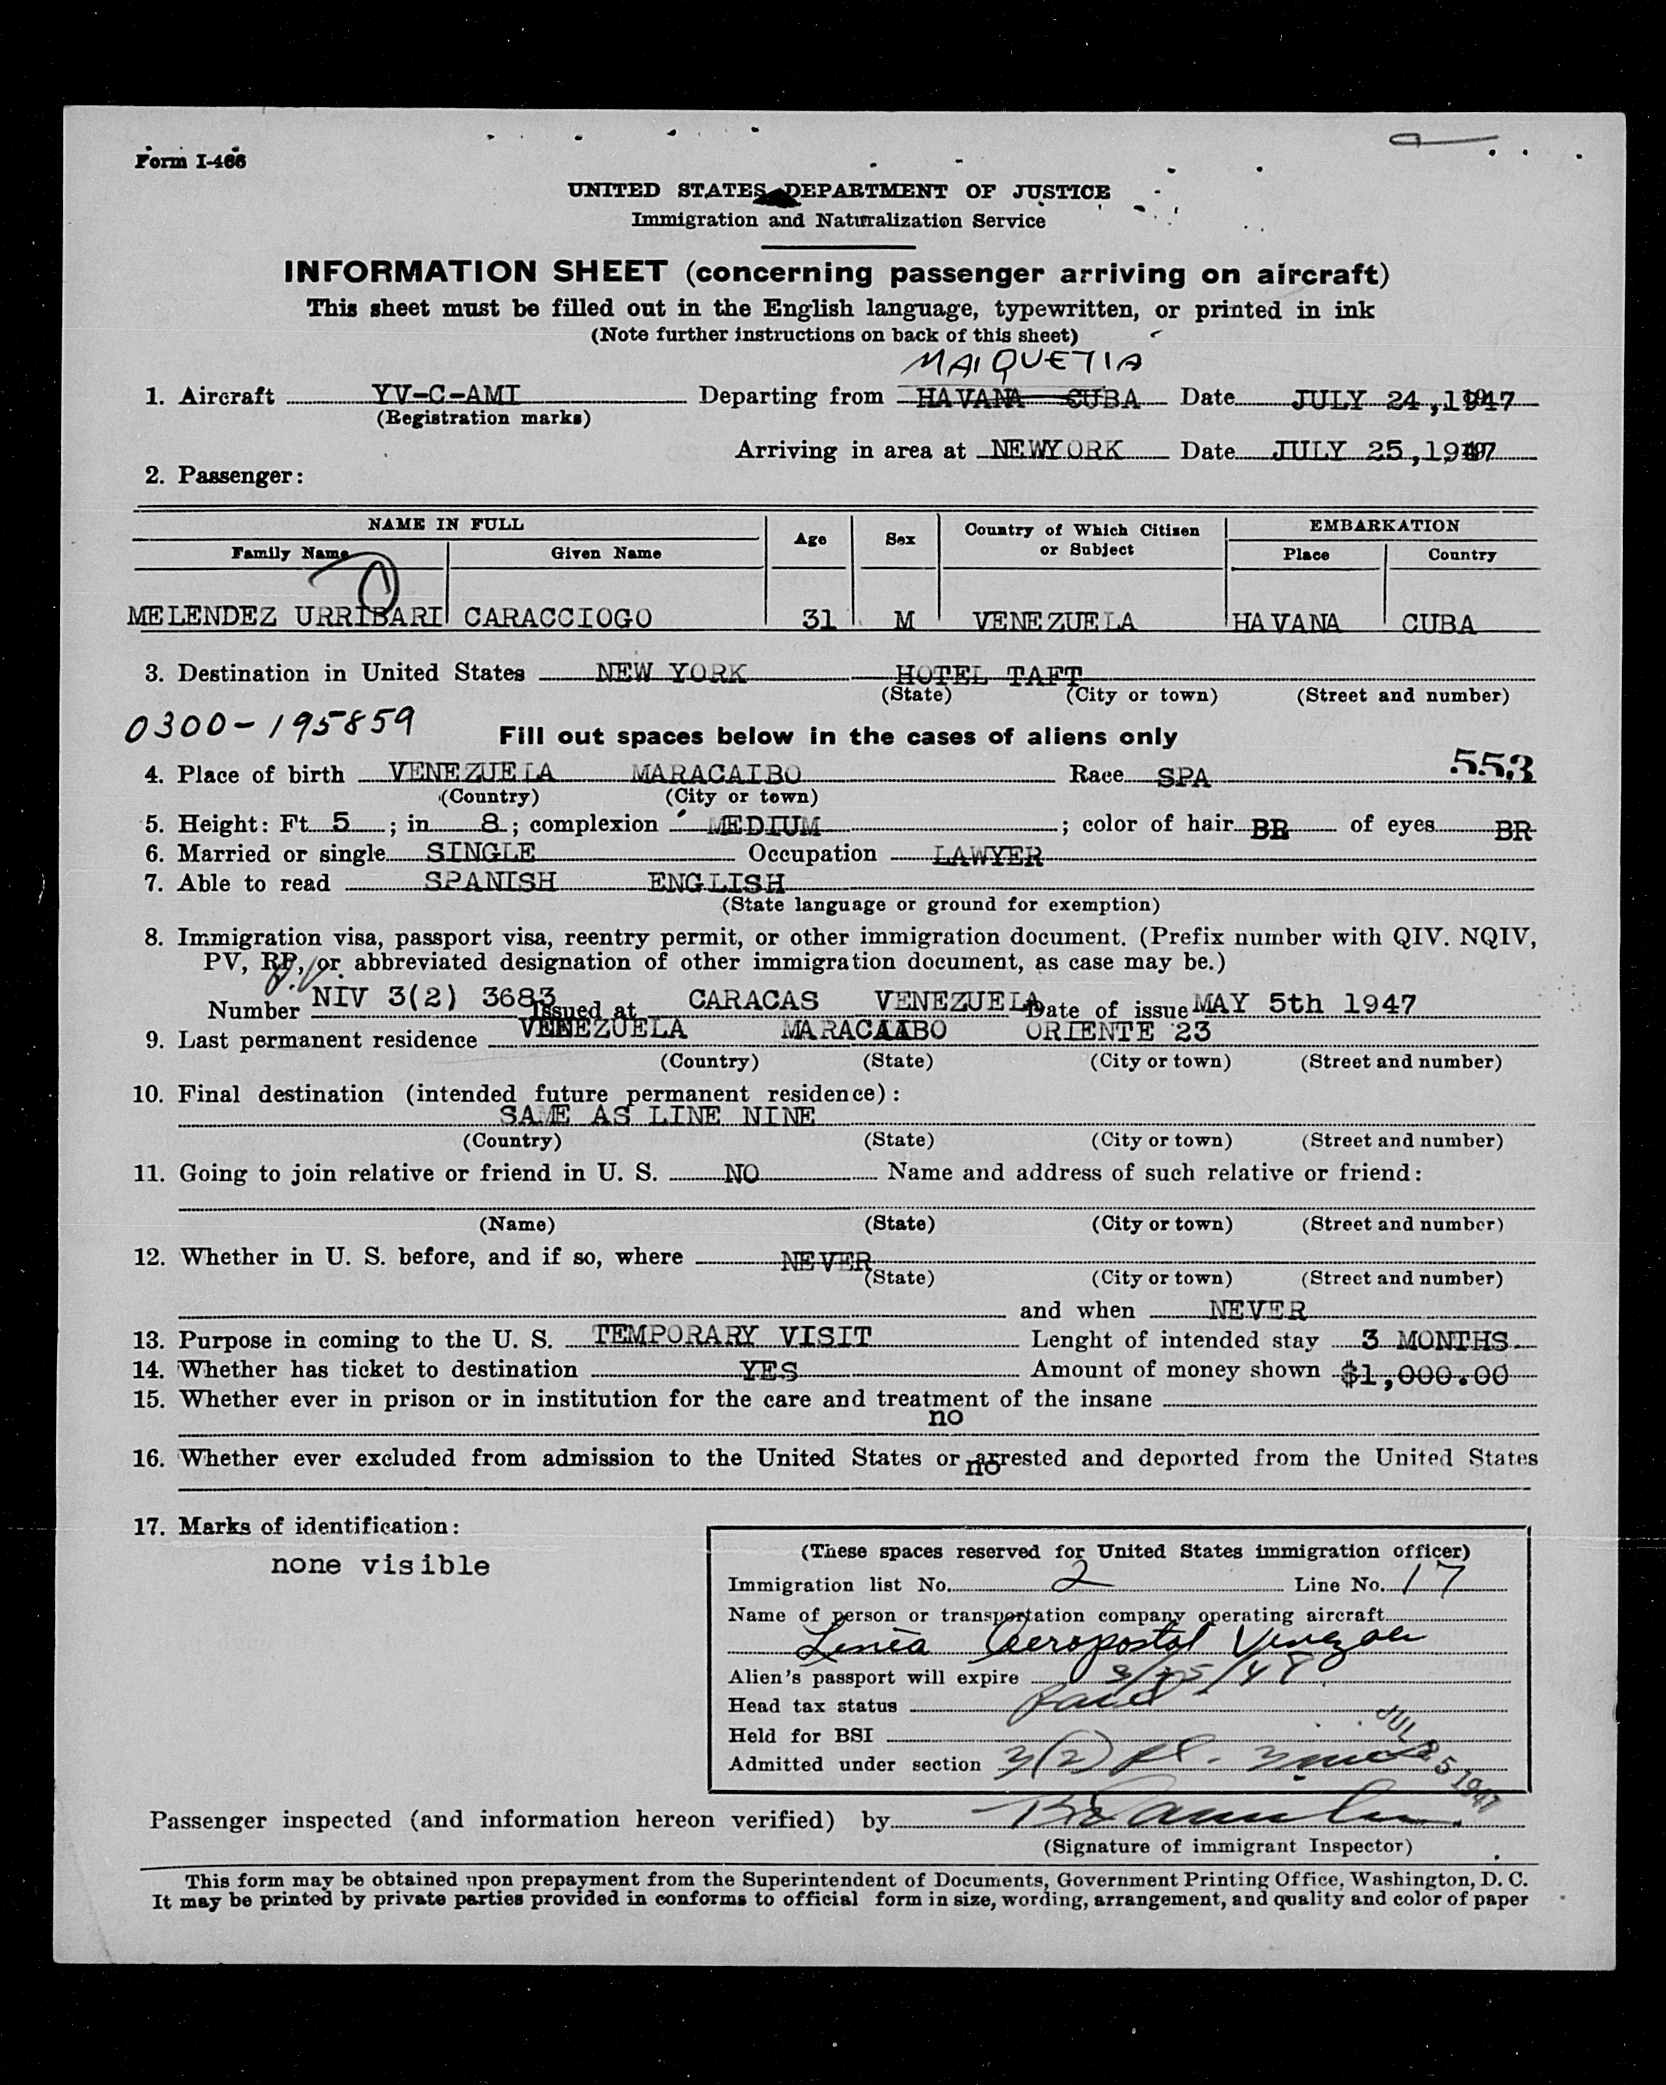 Form I-466
UNITED STATES DEPARTMENT OF JUSTICE
Immigration and Naturalization Service
INFORMATION SHEET (concerning passenger arriving on aircraft)
This sheet must be filled out in the English language, typewritten, or printed in ink
(Note further instructions on back of this sheet)
MAIQUETIA
1. Aircraft YV-C-AMI Departing from HAVANA CUBA Date JULY 24,1947
(Registration marks)
Arriving in area at NEWYORK Date JULY 25,1947
2. Passenger:
NAME IN FULL Age Sex Country of Which Citizen or Subject EMBARKATION
Family Name Given Name Place Country
MELENDEZ URRIBARI CARACCIOGO 31 M VENEZUELA HAVANA CUBA
3. Destination in United States NEW YORK HOTEL TAFT
(State) (City or town) (Street and number)
0300-195859 Fill out spaces below in the cases of aliens only
553
4. Place of birth VENEZUELA MARACAIBO Race SPA
(Country) (City or town)
5. Height: Ft. 5 ; in. 8 ; complexion MEDIUM ; color of hair BR of eyes BR
6. Married or single SINGLE Occupation LAWYER
7. Able to read SPANISH ENGLISH
(State language or ground for exemption)
8. Immigration visa, passport visa, reentry permit, or other immigration document. (Prefix number with QIV. NQIV,
PV, RP, or abbreviated designation of other immigration document, as case may be.)
Number NIV 3(2) 3683 Issued at CARACAS VENEZUELA Date of issue MAY 5th 1947
9. Last permanent residence VENEZUELA MARACAIBO ORIENTE 23
(Country) (State) (City or town) (Street and number)
10. Final destination (intended future permanent residence):
SAME AS LINE NINE
(Country) (State) (City or town) (Street and number)
11. Going to join relative or friend in U. S. NO Name and address of such relative or friend:
(Name) (State) (City or town) (Street and number)
12. Whether in U. S. before, and if so, where NEVER
(State) (City or town) (Street and number)
and when NEVER
13. Purpose in coming to the U. S. TEMPORARY VISIT Lenght of intended stay 3 MONTHS
14. Whether has ticket to destination YES Amount of money shown $1,000.00
15. Whether ever in prison or in institution for the care and treatment of the insane
no
16. Whether ever excluded from admission to the United States or arrested and deported from the United States
no
17. Marks of identification:
none visible
(These spaces reserved for United States immigration officer)
Immigration list No. 2 Line No. 17
Name of person or transportation company operating aircraft
Linea Aeropostal Venezola
Alien's passport will expire
Head tax status Paid
Held for BSI
Admitted under section 3(2)
JUL 25 1947
Passenger inspected (and information hereon verified) by
(Signature of immigrant Inspector)
This form may be obtained upon prepayment from the Superintendent of Documents, Government Printing Office, Washington, D. C.
It may be printed by private parties provided in conforms to official form in size, wording, arrangement, and quality and color of paper